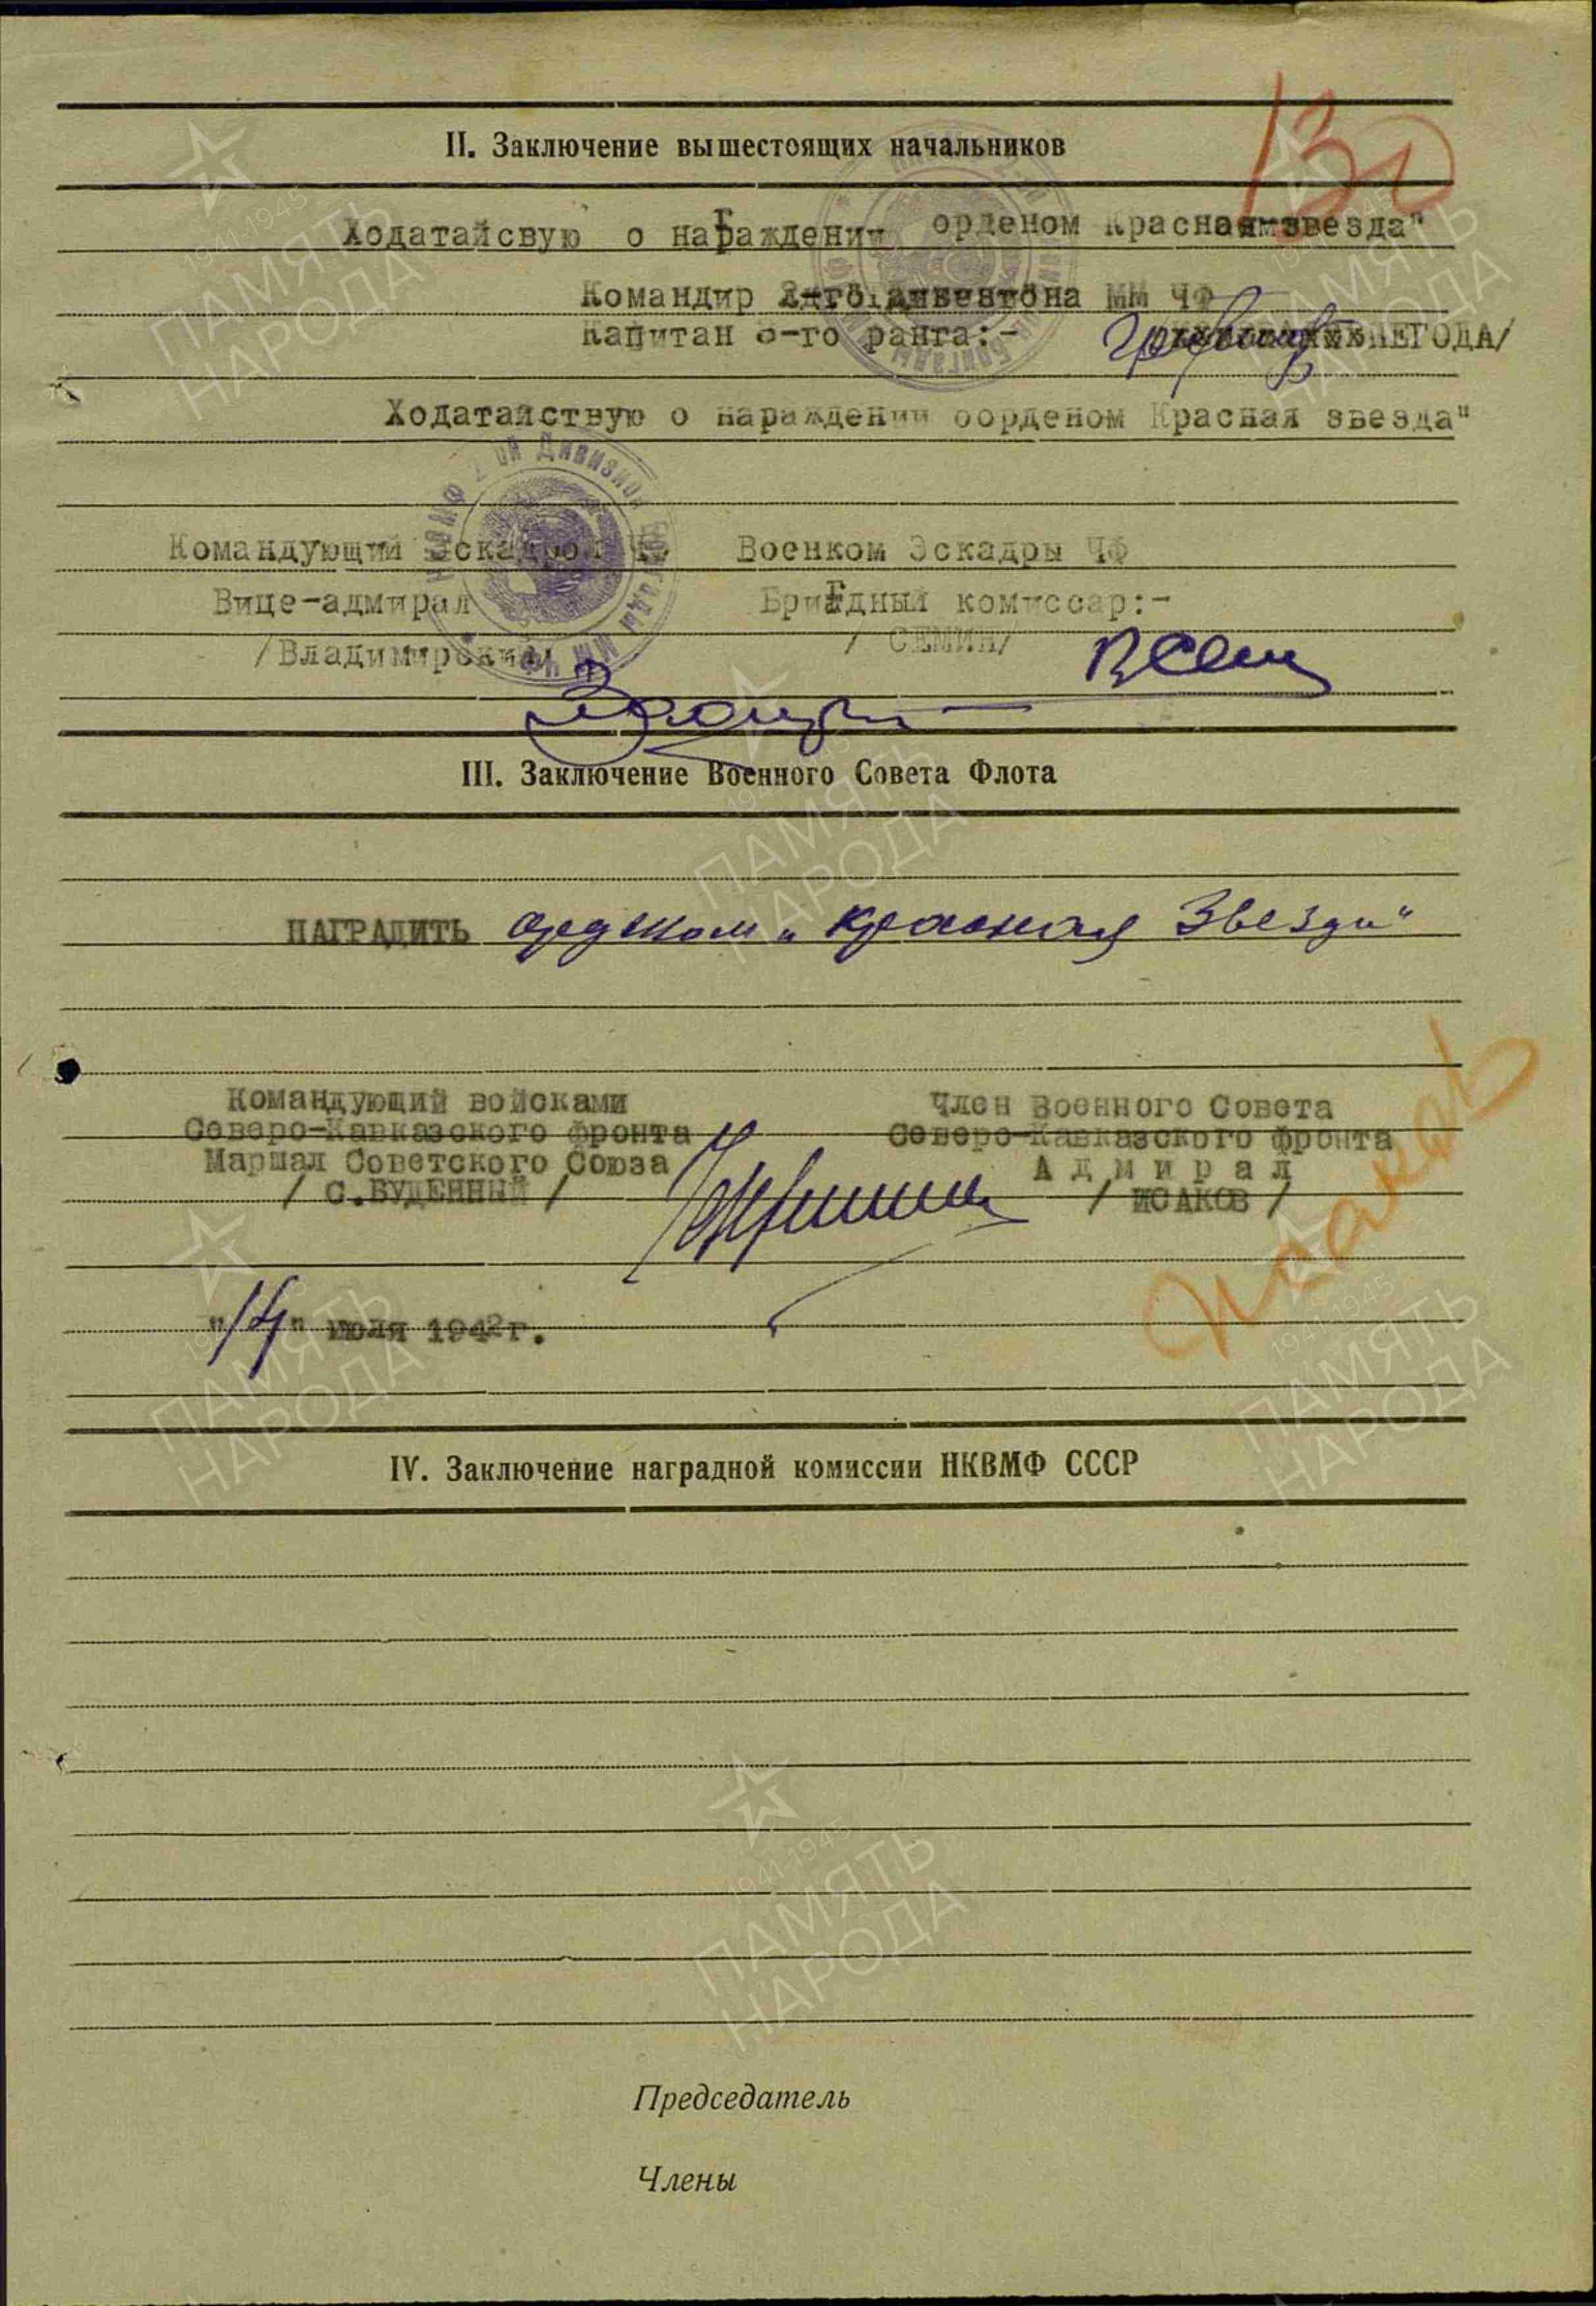 II. Заключение вышестоящих начальников
Ходатайсвую о награждении орденом Красная звезда"
Командир 2-го дивизиона ММ ЧФ
Капитан 3-го ранга:- НЕГОДА/
Ходатайствую о нараждении оорденом Красная звезда"
Командующий Эскадрой ЧФ Военком Эскадры ЧФ
Вице-адмирал Бригдный комиссар:-
/Владимирский/ / СЕМИН/
III. Заключение Военного Совета Флота
НАГРАДИТЬ орденом „Красная Звезда"
Командующий войсками Член Военного Совета
Северо-Кавказского фронта Северо-Кавказского фронта
Маршал Советского Союза Адмирал
/ С.БУДЕННЫЙ / / ИСАКОВ /
Исаков
"14" июля 1942г.
IV. Заключение наградной комиссии НКВМФ СССР
Председатель
Члены
1941-1945
ПАМЯТЬ
НАРОДА